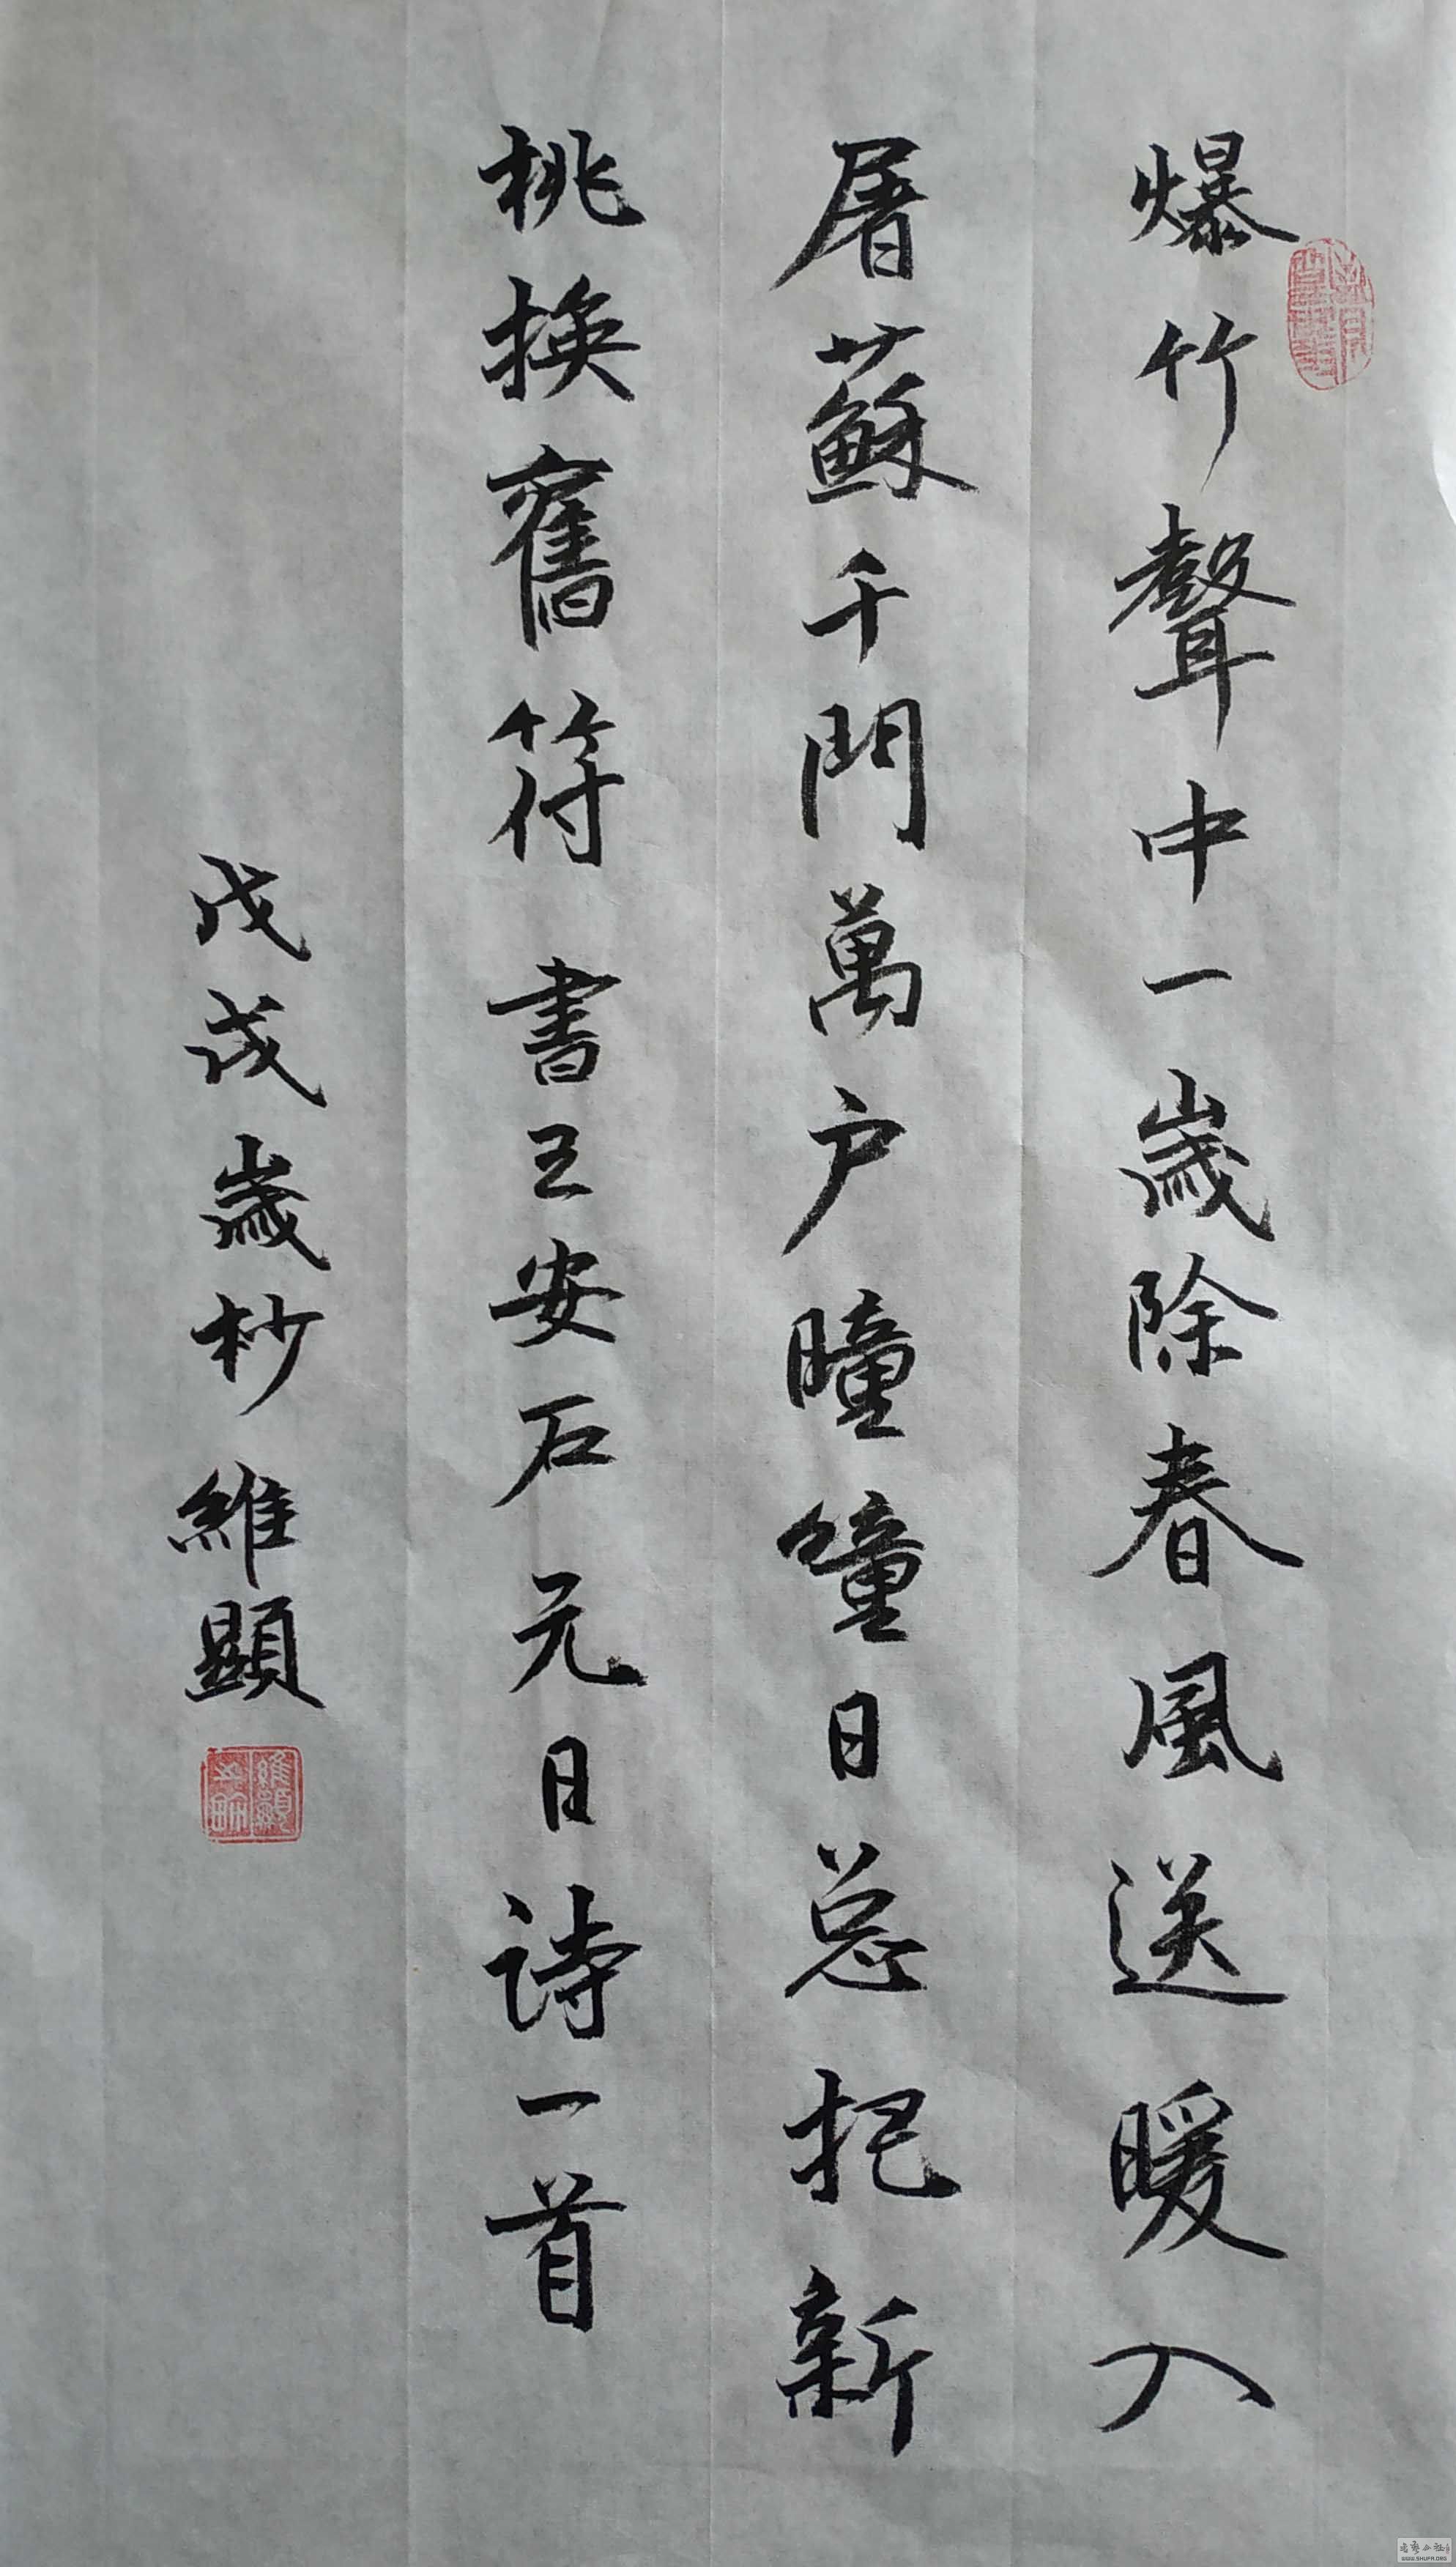 爆竹聲中一歲除春風送暖入
屠蘇千門萬户瞳瞳日总把新
桃換舊符書王安石元日詩一首
戊戌歲杪維顯
WWW.SHUFA.ORG